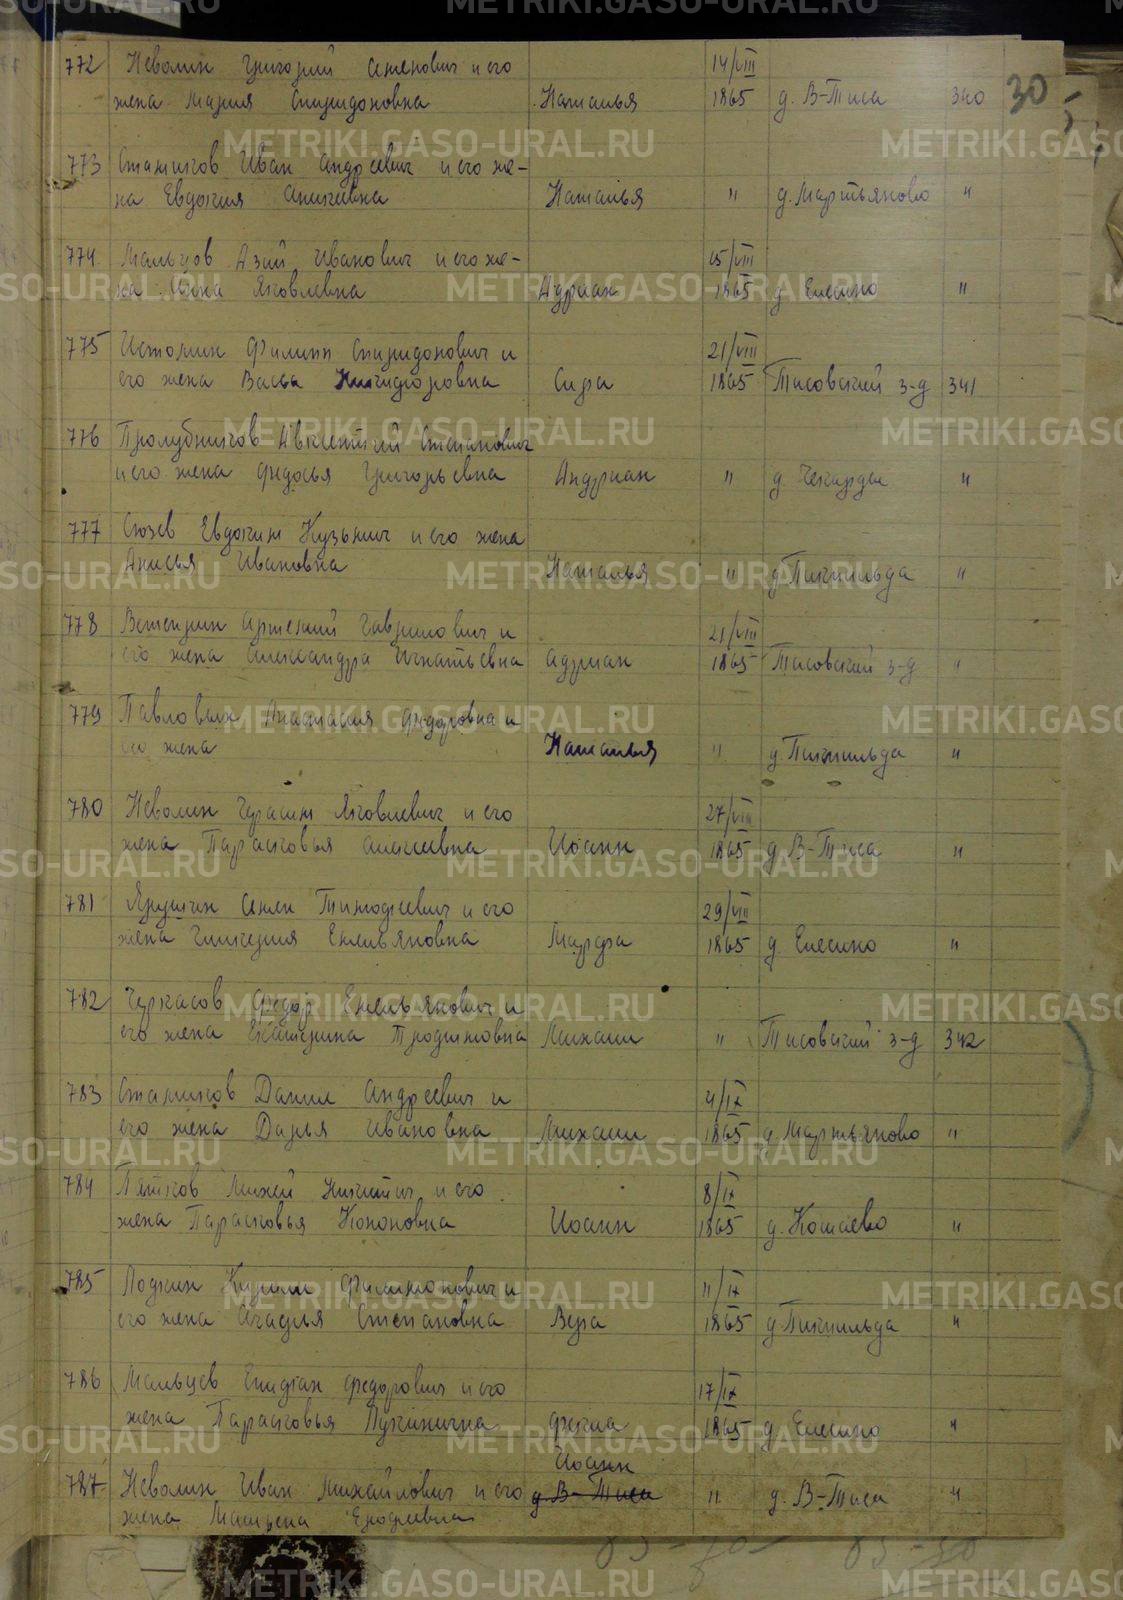 30
772 Неволин Григорий Семенович и его 14/VIII
жена Мария Спиридоновна Наталья 1865 д. В-Тиса 340
773 Стахигов Иван Андреевич и его же-
на Евдокия Аникиевна Наталья " д. Мартьяново "
774 Мальцов Азий Иванович и его же- 15/VIII
на Анна Яковлевна Адриан 1865 д. Елесино "
775 Истомин Филипп Спиридонович и 21/VIII
его жена Васса Никифоровна Сира 1865 Тисовский з-д 341
776 Пролубников Авксентий Степанович
и его жена Федосья Григорьевна Андриан " д. Чекарда "
777 Сюзев Евдоким Кузьмич и его жена
Анисья Ивановна Наталья " д. Пикмильда "
778 Артемий Гаврилович и 21/VIII
его жена Александра Игнатьевна Адриан 1865 Тисовский з-д "
779 Павловых Анастасия Федоровна и
его жена Наталья " д. Пикмильда "
780 Неволин Герасим Яковлевич и его 27/VIII
жена Парасковья Алексеевна Иоанн 1865 д. В-Тиса "
781 Ярушин Семен Тимофеевич и его 29/VIII
жена Гликерия Емельяновна Марфа 1865 д. Елесино "
782 Черкасов Федор Емельянович и
его жена Екатерина Трофимовна Михаил " Тисовский з-д 342
783 Данил Андреевич и 4/IX
его жена Дарья Ивановна Михаил 1865 д. Мартьяново "
784 Пятков Михей Никитич и его 8/IX
жена Парасковья Кононовна Иоанн 1865 д. Кошаево "
785 Лодкин Кирилл Филимонович и 11/IX
его жена Агафия Степановна Вера 1865 д. Пикмильда "
786 Мальцев Епифан Федорович и его 17/IX
жена Парасковья Лукинична Фекла 1865 д. Елесино "
Иоанн
787 Неволин Иван Михайлович и его д. В-Тиса " д. В-Тиса "
жена Матрена Ерофеевна
METRIKI.GASO-URAL.RU